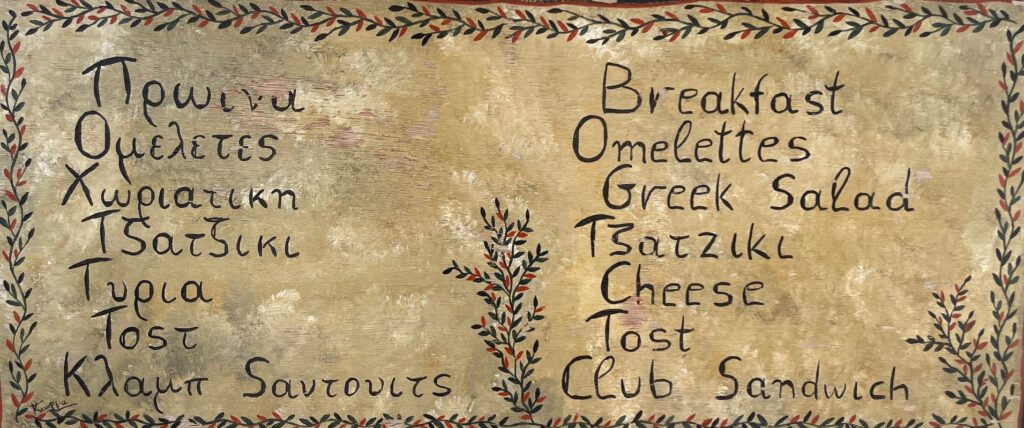 Πρωινα
Ομελετες
Χωριατικη
Τζατζικι
Τυρια
Τοστ
Κλαμπ Sαντουιτς
Breakfast
Omelettes
Greek Salad
Tzatziki
Cheese
Tost
Club Sandwich